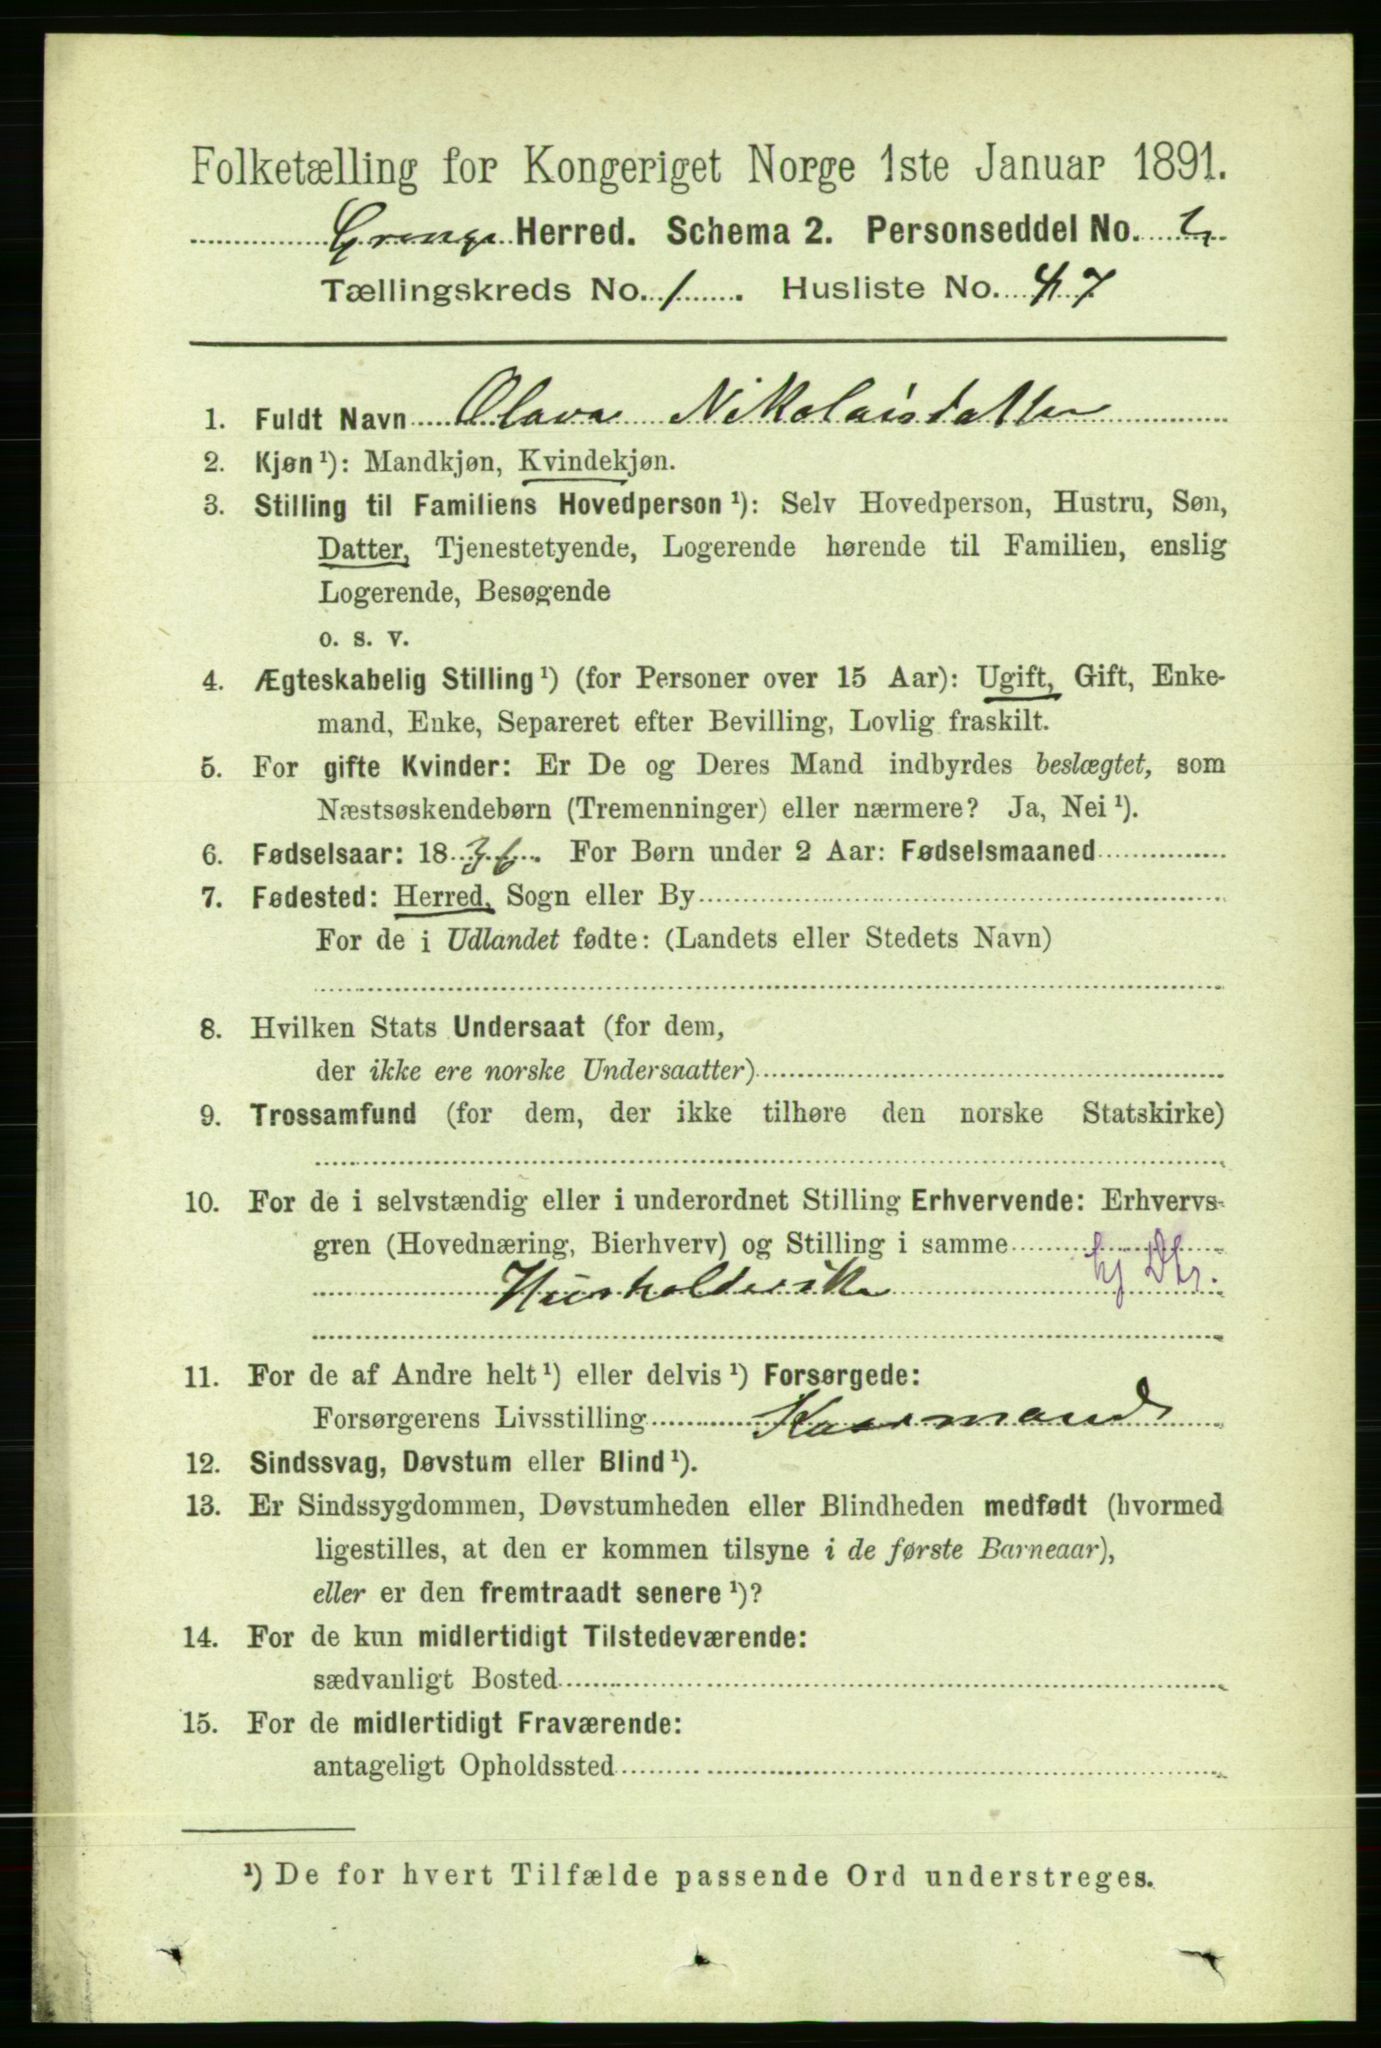 Folketælling for Kongeriget Norge 1ste Januar 1891.
Herred. Schema 2. Personseddel No. 2
Tællingskreds No. 1. Husliste No. 47
1. Fuldt Navn Olava Nikolaisdatter
2. Kjøn ¹): Mandkjøn, Kvindekjøn.
3. Stilling til Familiens Hovedperson ¹): Selv Hovedperson, Hustru, Søn,
Datter, Tjenestetyende, Logerende hørende til Familien, enslig
Logerende, Besøgende
o. s. v.
4. Ægteskabelig Stilling ¹) (for Personer over 15 Aar): Ugift, Gift, Enke-
mand, Enke, Separeret efter Bevilling, Lovlig fraskilt.
5. For gifte Kvinder: Er De og Deres Mand indbyrdes beslægtet, som
Næstsøskendebørn (Tremenninger) eller nærmere? Ja, Nei ¹).
6. Fødselsaar: 18 For Børn under 2 Aar: Fødselsmaaned
7. Fødested: Herred, Sogn eller By
For de i Udlandet fødte: (Landets eller Stedets Navn)
8. Hvilken Stats Undersaat (for dem,
der ikke ere norske Undersaatter)
9. Trossamfund (for dem, der ikke tilhøre den norske Statskirke)
10. For de i selvstændig eller i underordnet Stilling Erhvervende: Erhvervs-
gren (Hovednæring, Bierhverv) og Stilling i samme
Husholderske hj Dtr.
11. For de af Andre helt ¹) eller delvis ¹) Forsørgede:
Forsørgerens Livsstilling Kaarmand
12. Sindssvag, Døvstum eller Blind ¹).
13. Er Sindssygdommen, Døvstumheden eller Blindheden medfødt (hvormed
ligestilles, at den er kommen tilsyne i de første Barneaar),
eller er den fremtraadt senere ¹)?
14. For de kun midlertidigt Tilstedeværende:
sædvanligt Bosted
15. For de midlertidigt Fraværende:
antageligt Opholdssted
¹) De for hvert Tilfælde passende Ord understreges.